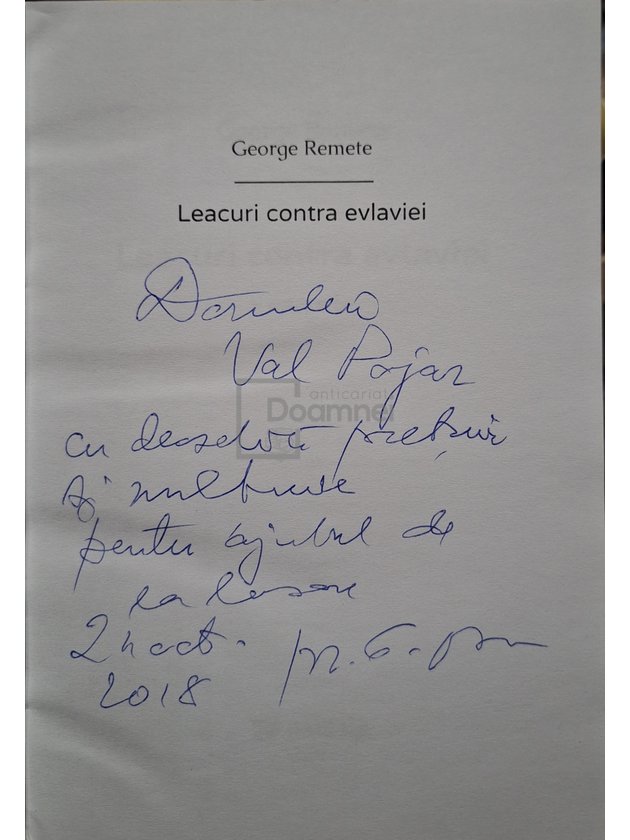 George Remete
Leacuri contra evlaviei
Domnului
Val Pojar
anticariat
Doamnei
cu deosebită prețuire
și mulțumire
pentru ajutorul de
la
2018
pr. G.